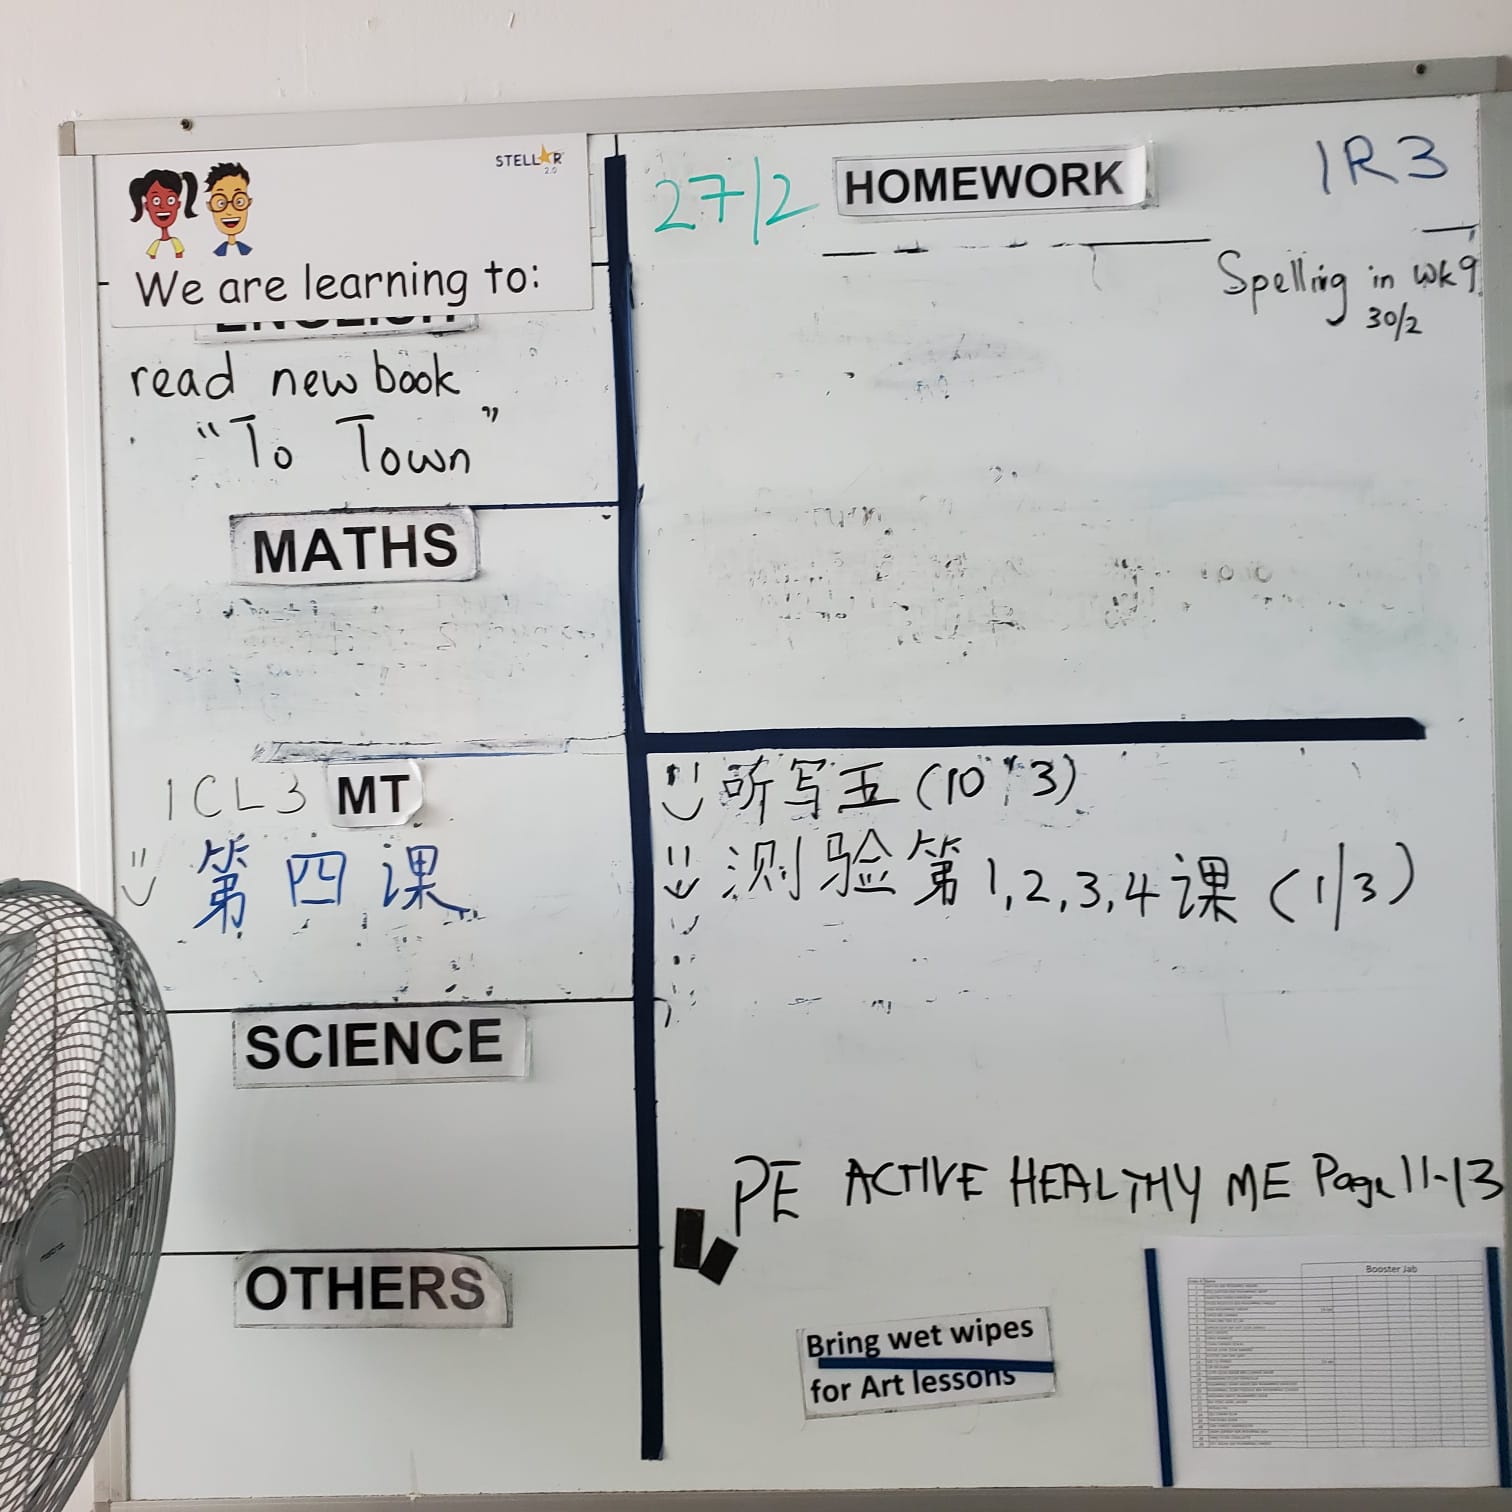 STELLAR
2.0
We are learning to:
ENGLISH
read new book
"To Town"
MATHS
1CL3 MT
第四课
SCIENCE
OTHERS
27/2 HOMEWORK 1R3
Spelling in wk9
30/2
听写五(10/3)
测验第1,2,3,4课(1/3)
PE ACTIVE HEALTHY ME Page 11-13
Bring wet wipes
for Art lessons
Booster Jab